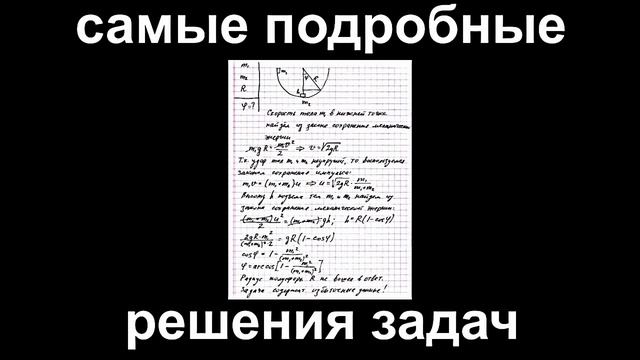 самые подробные
m₁
m₂
R
φ=?
m₁
φ
R
h
m₂
Скорость тела m₁ в нижней точке
найдём из закона сохранения механической
энергии
m₁gR = m₁v²/2 ⇒ v = √2gR
Т.к. удар тел m₁ и m₂ неупругий, то воспользуемся
законом сохранения импульса:
m₁v = (m₁+m₂)u ⇒ u = √2gR · m₁/(m₁+m₂)
Высоту h подъёма тел m₁ и m₂ найдём из
закона сохранения механической энергии:
(m₁+m₂)u²/2 = (m₁+m₂)gh; h = R(1-cosφ)
2gR·m₁²/(m₁+m₂)²·2 = gR(1-cosφ)
cosφ = 1 - m₁²/(m₁+m₂)²
φ = arccos[1 - m₁²/(m₁+m₂)²]
Радиус полусферы R не вошёл в ответ...
Задача содержит избыточные данные!
решения задач